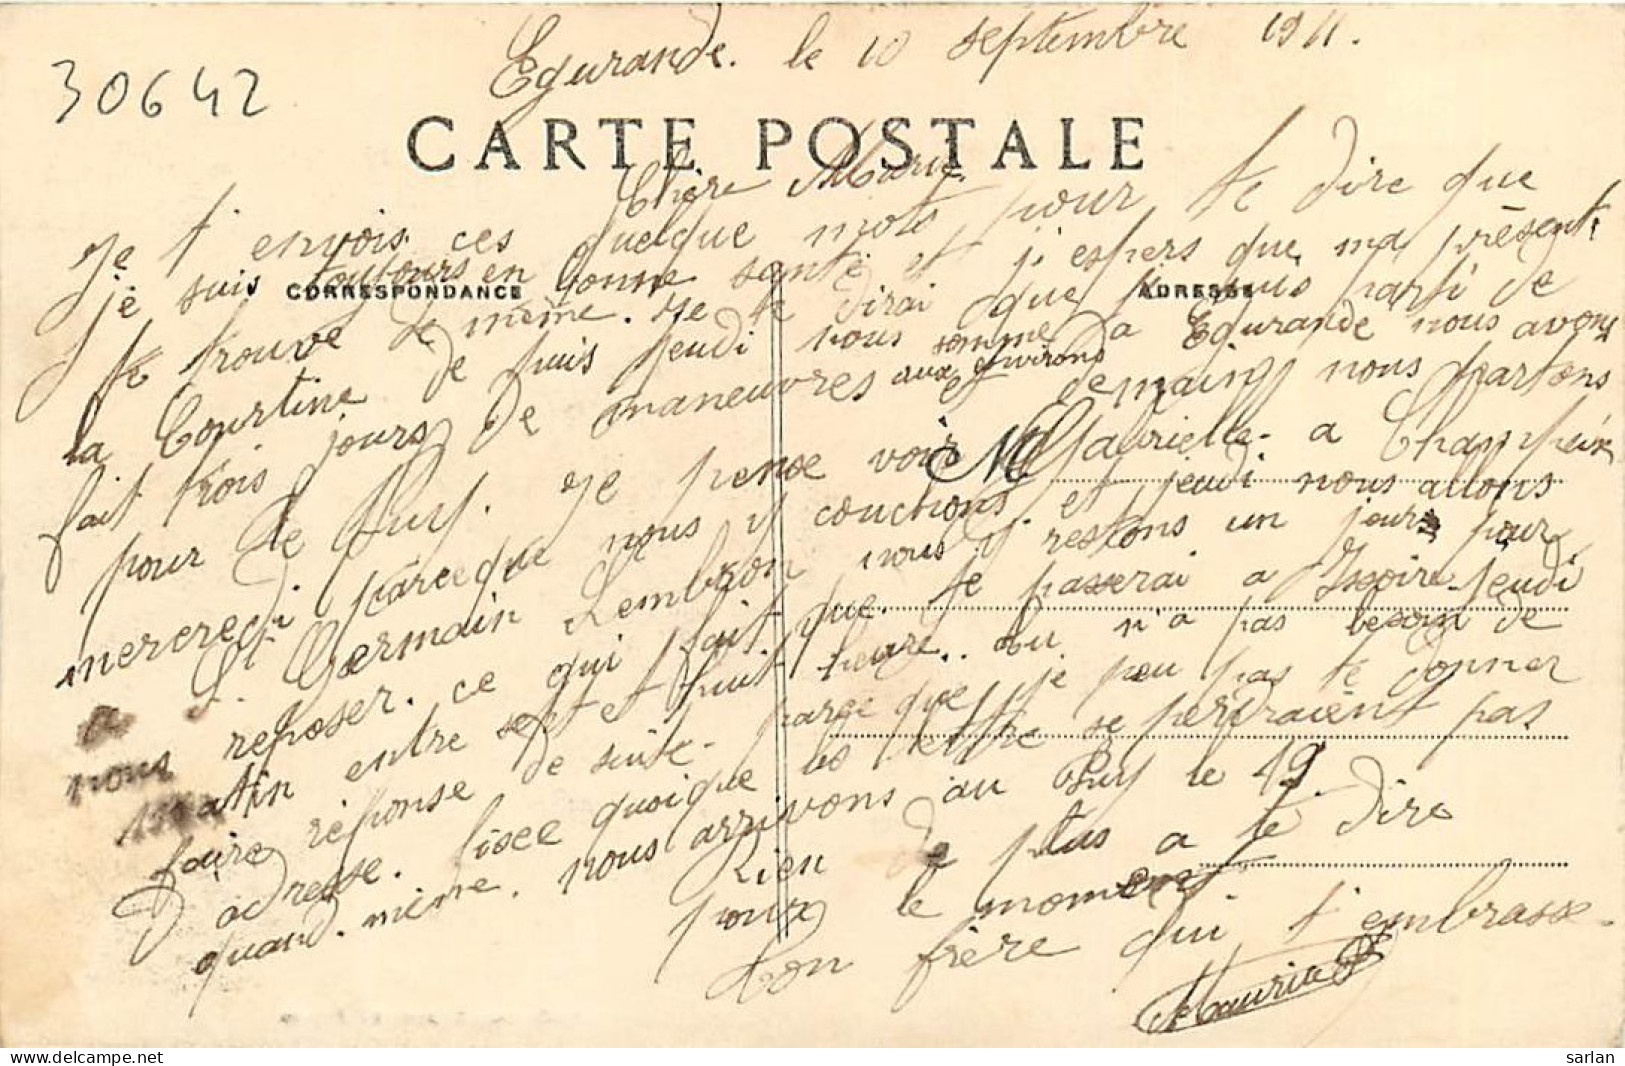 Egurande. le 10 septembre 1911.
30642
CARTE POSTALE
Chère Marie.
Je t'envois ces quelque mots pour te dire que
je suis toujours en bonne santé et j'espers que ma présente
CORRESPONDANCE
ADRESSE
te trouve de même. Je te dirai que je suis parti de
la Courtine de puis jeudi nous somme a Egurande nous avons
fait trois jours de manœuvres aux environs et demain nous partons
pour le Puy. Je pense voir Gabrielle a Champeix
M
mercredi parceque nous y couchons et jeudi nous allons
a St Germain Lembron nous y restons un jours pour
nous reposer. ce qui fait que je passerai a Issoire jeudi
matin entre sept et huit heure. tu n'a pas besoin de
faire réponse de suite parce que je peu pas te donner
d'adresse. fixe quoique les lettre se perdraient pas
quand même. nous arrivons au Puy le 19.
Rien de plus a te dire
pour le moment
Ton frère qui t'embrasse.
Maurice
sarlan
www.delcampe.net